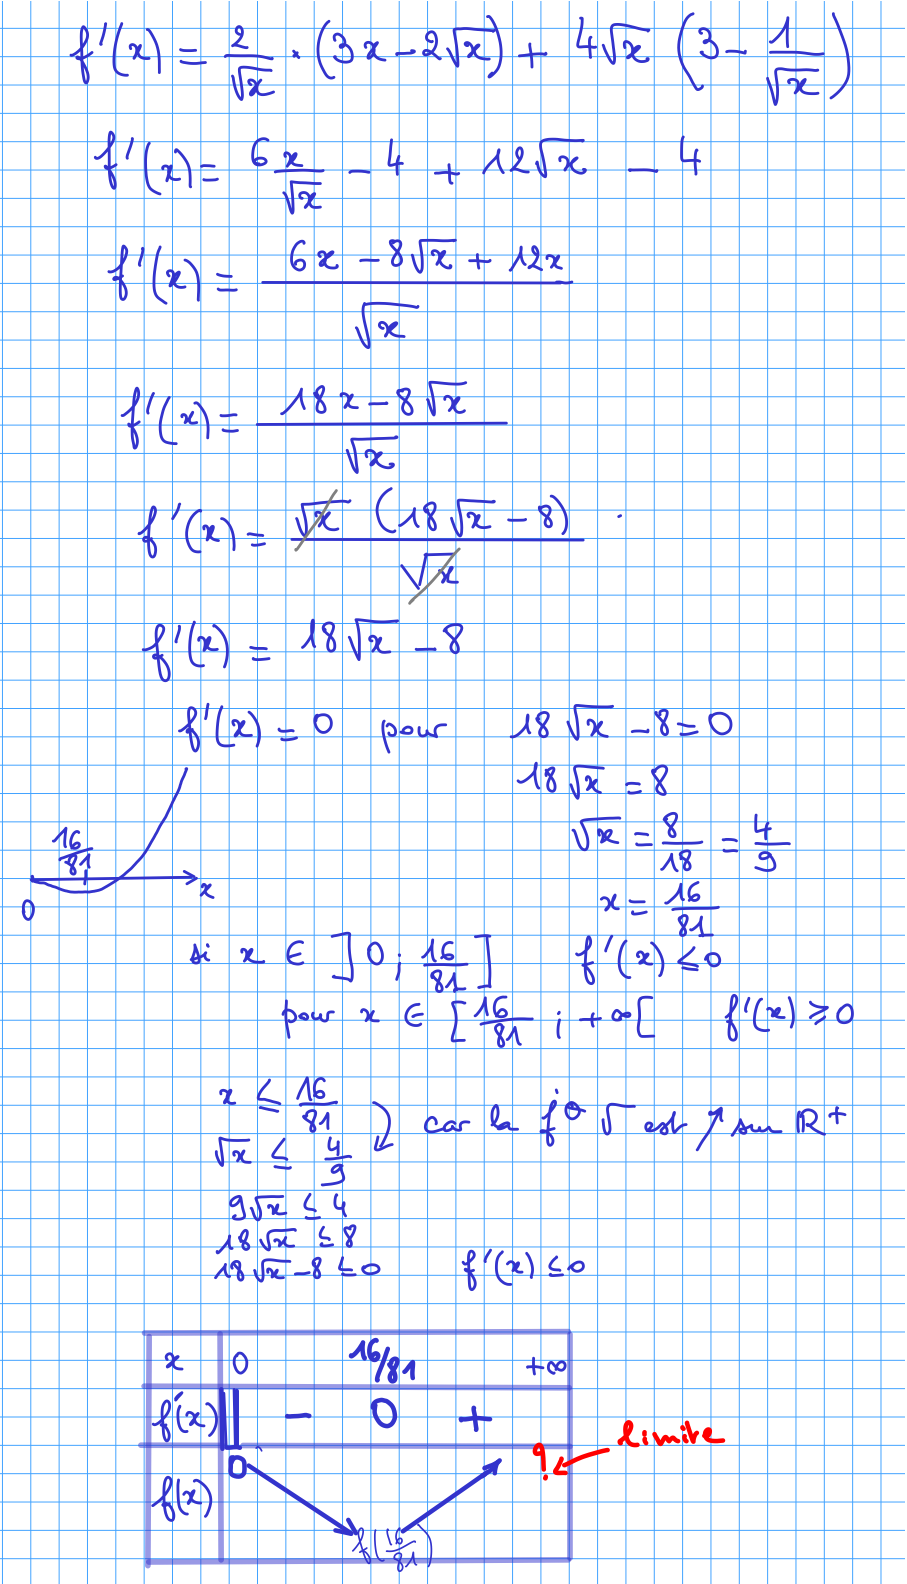 f'(x) = 2/√x · (3x - 2√x) + 4√x (3 - 1/√x)
f'(x) = 6x/√x - 4 + 12√x - 4
f'(x) = (6x - 8√x + 12x)/√x
f'(x) = (18x - 8√x)/√x
f'(x) = √x (18√x - 8)/√x
f'(x) = 18√x - 8
f'(x) = 0 pour 18√x - 8 = 0
18√x = 8
√x = 8/18 = 4/9
16/81
x
0
x = 16/81
si x ∈ ]0 ; 16/81] f'(x) ≤ 0
pour x ∈ [16/81 ; +∞[ f'(x) ≥ 0
x ≤ 16/81
car la f° √ est ↗ sur ℝ+
√x ≤ 4/9
9√x ≤ 4
18√x ≤ 8
18√x - 8 ≤ 0 f'(x) ≤ 0
x 0 16/81 +∞
f'(x) || - 0 +
limite
f(x) 0 ↘ f(16/81) ↗ ?